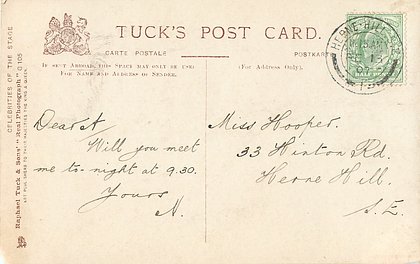 TUCK'S POST CARD.
CARTE POSTALE
POSTKARTE
IF SENT ABROAD, THIS SPACE MAY ONLY BE USED
FOR NAME AND ADDRESS OF SENDER.
(FOR ADDRESS ONLY.)
HERNE HILL
HALF PENNY
Dear A
Will you meet
me to-night at 9.30.
Yours
A.
Miss Hooper.
33 Hinton Rd.
Herne Hill.
S.E.
CELEBRITIES OF THE STAGE
Raphael Tuck & Sons' "Real Photograph" G 105
ART PUBLISHERS TO THEIR MAJESTIES THE KING & QUEEN